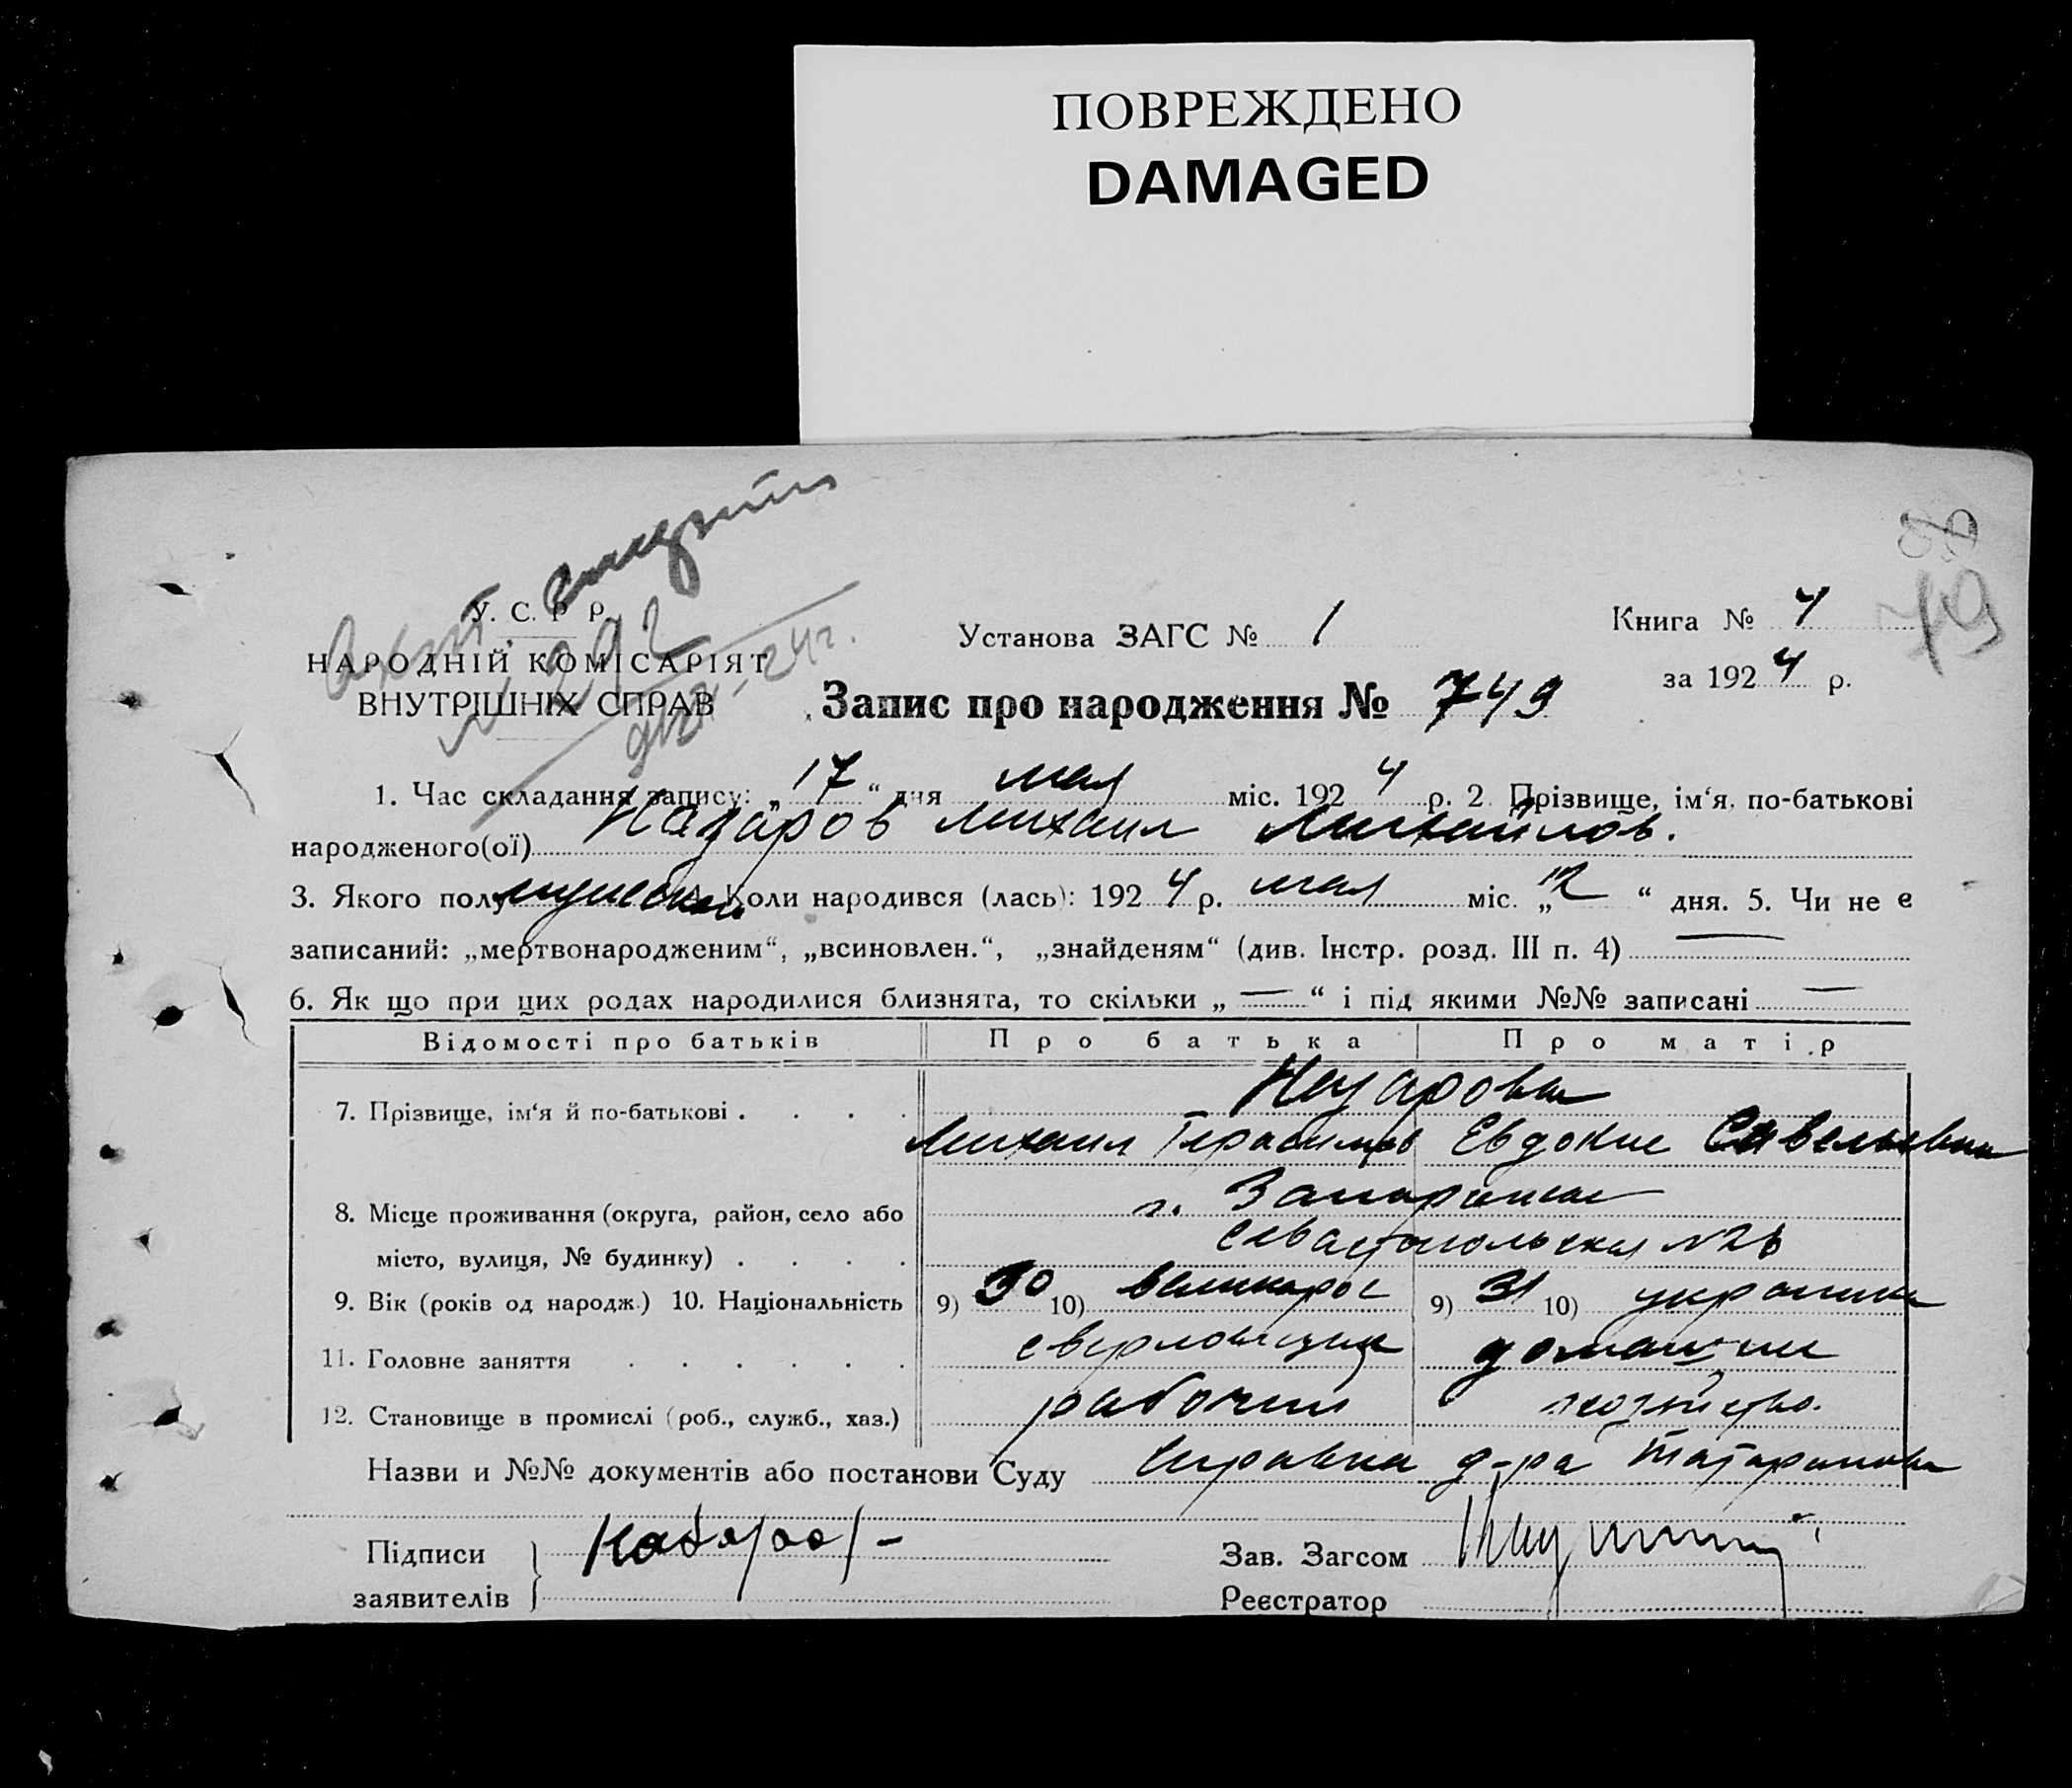 ПОВРЕЖДЕНО
DAMAGED
79
Акт смерти
№ 292
У. С. Р Р.
НАРОДНІЙ КОМІСАРІЯТ
ВНУТРІШНІХ СПРАВ
Установа ЗАГС № 1
Книга № 4
за 1924 р.
Запис про народження № 749
1. Час складання запису: „17“ дня мая міс. 1924 р. 2. Прізвище, ім‘я, по-батькові
народженого(ої) Назаров Михаил Михайлов.
3. Якого полу мужской Коли народився (лась): 1924 р. мая міс. „12“ дня. 5. Чи не є
записаний: „мертвонародженим“, „всиновлен.“, „знайденям“ (див. Інстр. розд. III п. 4) —
6. Як що при цих родах народилися близнята, то скільки „—“ і під якими №№ записані —
Відомості про батьків Про батька Про матір
7. Прізвище, ім‘я й по-батькові . . . . Назаровы
Михаил Герасимов Евдокие Савельевна
8. Місце проживання (округа, район, село або г. Запорожье
місто, вулиця, № будинку) . . . . Севастопольская №26
9. Вік (років од народж.) 10. Національність 9) 30 10) великорос 9) 31 10) украинка
11. Головне заняття . . . . . . сверловщик домашнее
12. Становище в промислі (роб., служб., хаз.) рабочий хозяйство.
Назви и №№ документів або постанови Суду Справка д-ра
Підписи заявителів
Зав. Загсом
Реєстратор